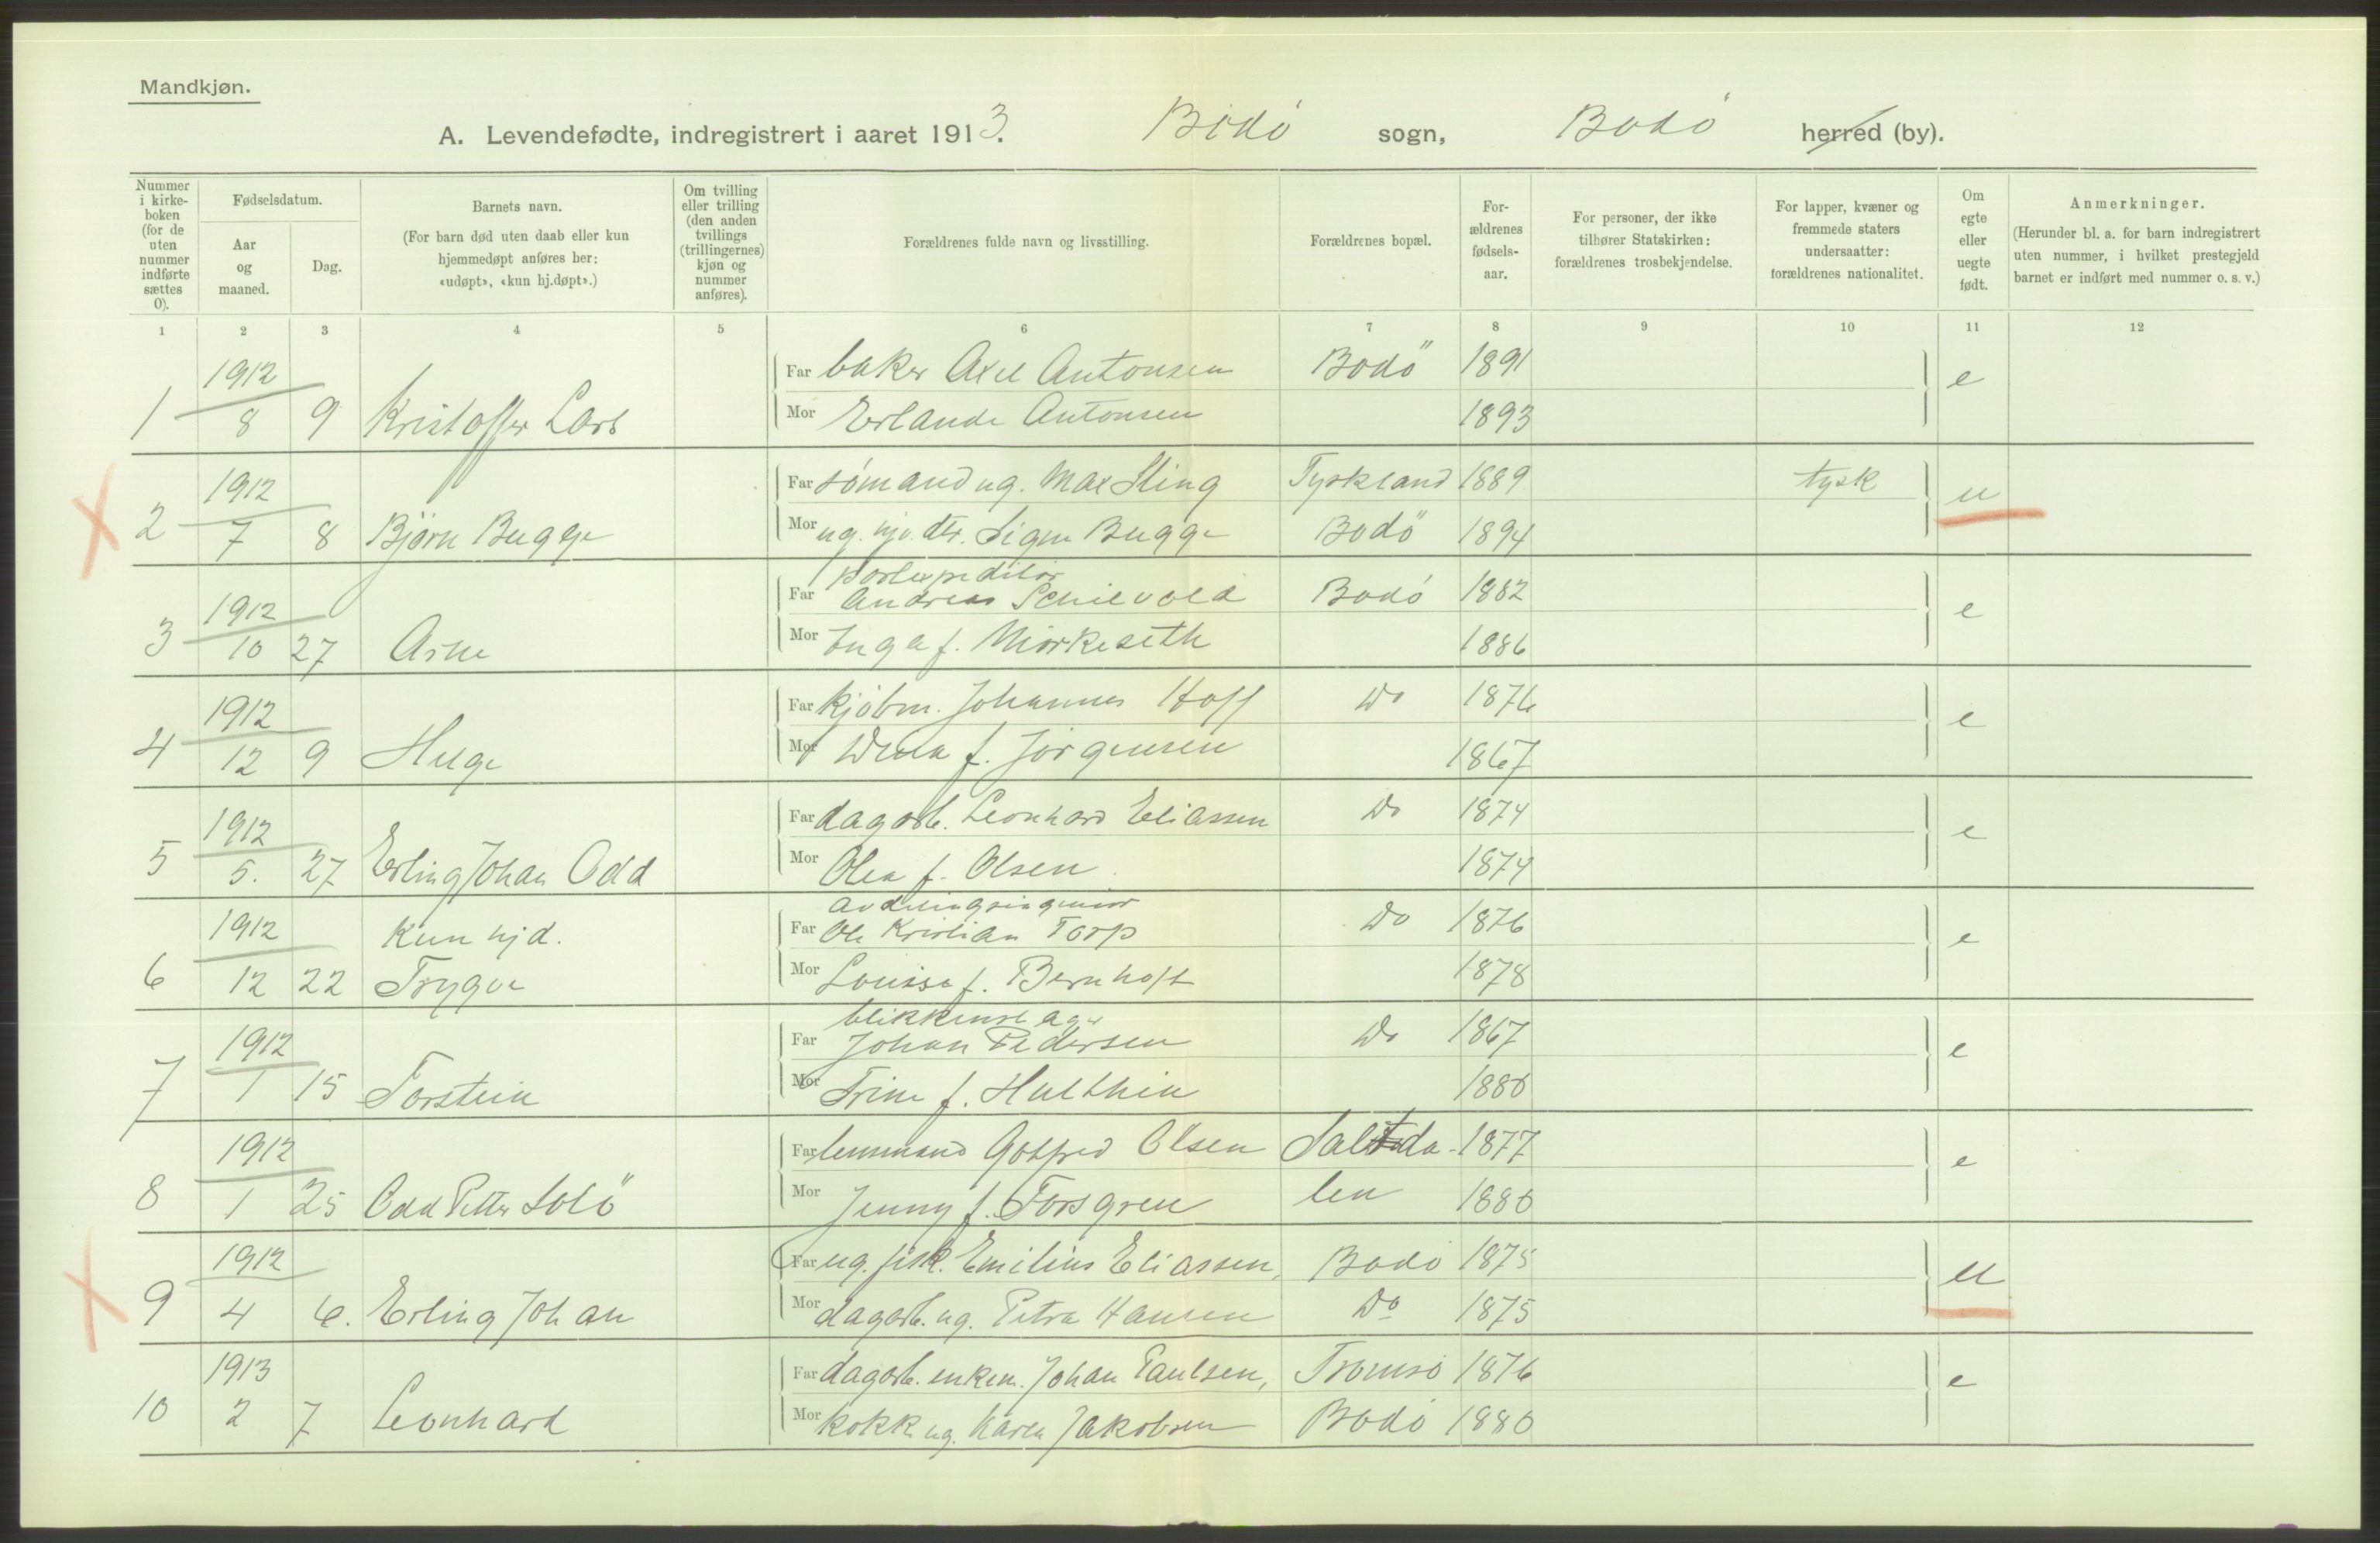 Mandkjøn.
A. Levendefødte, indregistrert i aaret 1913. Bodö sogn, Bodö herred (by).
Nummer i kirke-boken (for de uten nummer indførte sættes 0).
Fødselsdatum.
Aar og maaned.
Dag.
Barnets navn.
(For barn død uten daab eller kun hjemmedøpt anføres her: «udøpt», «kun hj.døpt».)
Om tvilling eller trilling (den anden tvillings (trillingernes) kjøn og nummer anføres).
Forældrenes fulde navn og livsstilling.
Forældrenes bopæl.
For-ældrenes fødsels-aar.
For personer, der ikke tilhører Statskirken: forældrenes trosbekjendelse.
For lapper, kvæner og fremmede staters undersaatter: forældrenes nationalitet.
Om egte eller uegte født.
Anmerkninger.
(Herunder bl. a. for barn indregistrert uten nummer, i hvilket prestegjeld barnet er indført med nummer o. s. v.)
1 2 3 4 5 6 7 8 9 10 11 12
1912 Far baker Axel Antonsen Bodö 1891 e
1 8 9 Kristoffer Lars Mor Erlande Antonsen 1893
1912 Far sömand ug. Max Sting Tyskland 1889 tysk u
2 7 8 Björn Bugge Mor ug. hjv. dtr. Signe Bugge Bodö 1894
postexpeditör
1912 Far Andreas Schievold Bodö 1882 e
3 10 27 Arne Mor Inga f. Mörkeseth 1886
1912 Far kjöbm. Johannes Hoff Do 1876 e
4 12 9 Helge Mor Dina f. Jörgensen 1867
1912 Far dagarb. Leonhard Eliassen Do 1874 e
5 5. 27 Erling Johan Odd Mor Olea f. Olsen 1874
avdelingsingeniör
1912 Kun hjd. Far Ole Kristian Torp Do 1876 e
6 12 22 Trygve Mor Louise f. Bernhoft 1878
blikkenslager
1912 Far Johan Pedersen Do 1867 e
7 1 15 Torstein Mor Trine f. Hulthin 1880
1912 Far lensmand Gotfred Olsen Saltda- 1877 e
8 1 25 Odd Petter Solö Mor Jenny f. Forsgren len 1880
1912 Far ug. fisk. Emilius Eliassen, Bodö 1875 u
9 4 6. Erling Johan Mor dagarb. ug. Petra Hansen Do 1875
1913 Far dagarb. enkem. Johan Paulsen, Tromsö 1876 e
10 2 7 Leonhard Mor kokk ug. Karen Jakobsen Bodö 1880